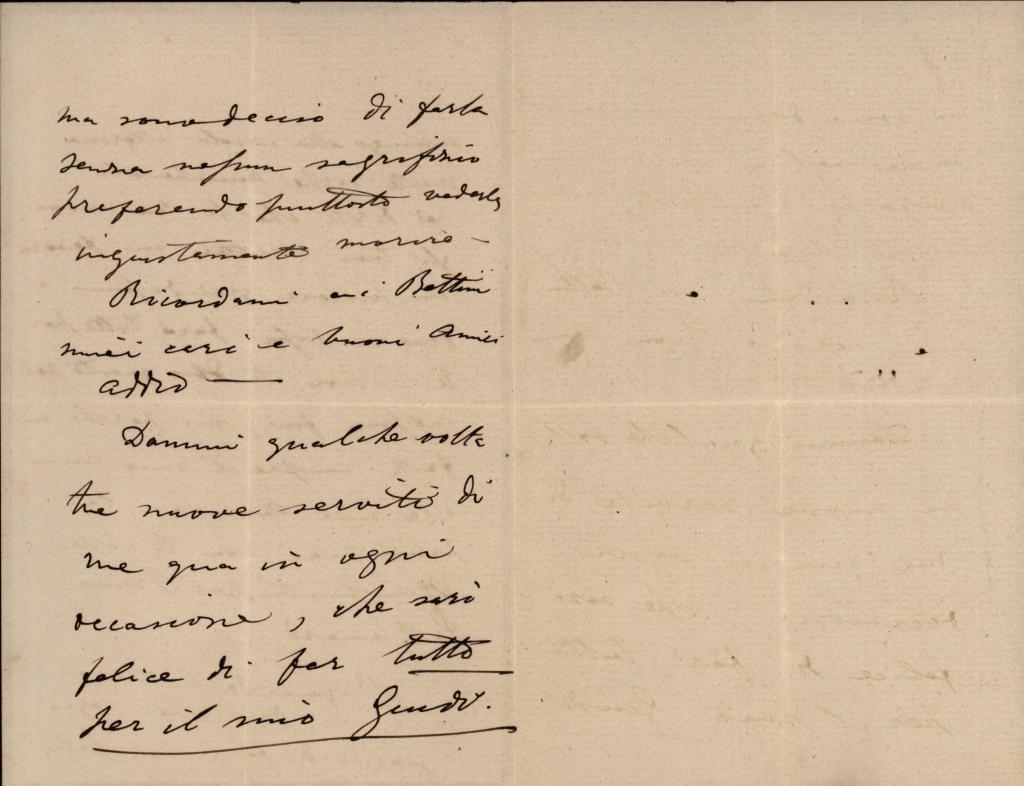 ma sono deciso di farla
senza nessun sagrifizio
preferendo piuttosto vederla
ingiustamente morire –
Ricordami ai Bettini
miei cari e buoni Amici
addio —
Dammi qualche volta
tue nuove serviti di
me qua in ogni
occasione, che sarò
felice di far tutto
per il mio Guidi.